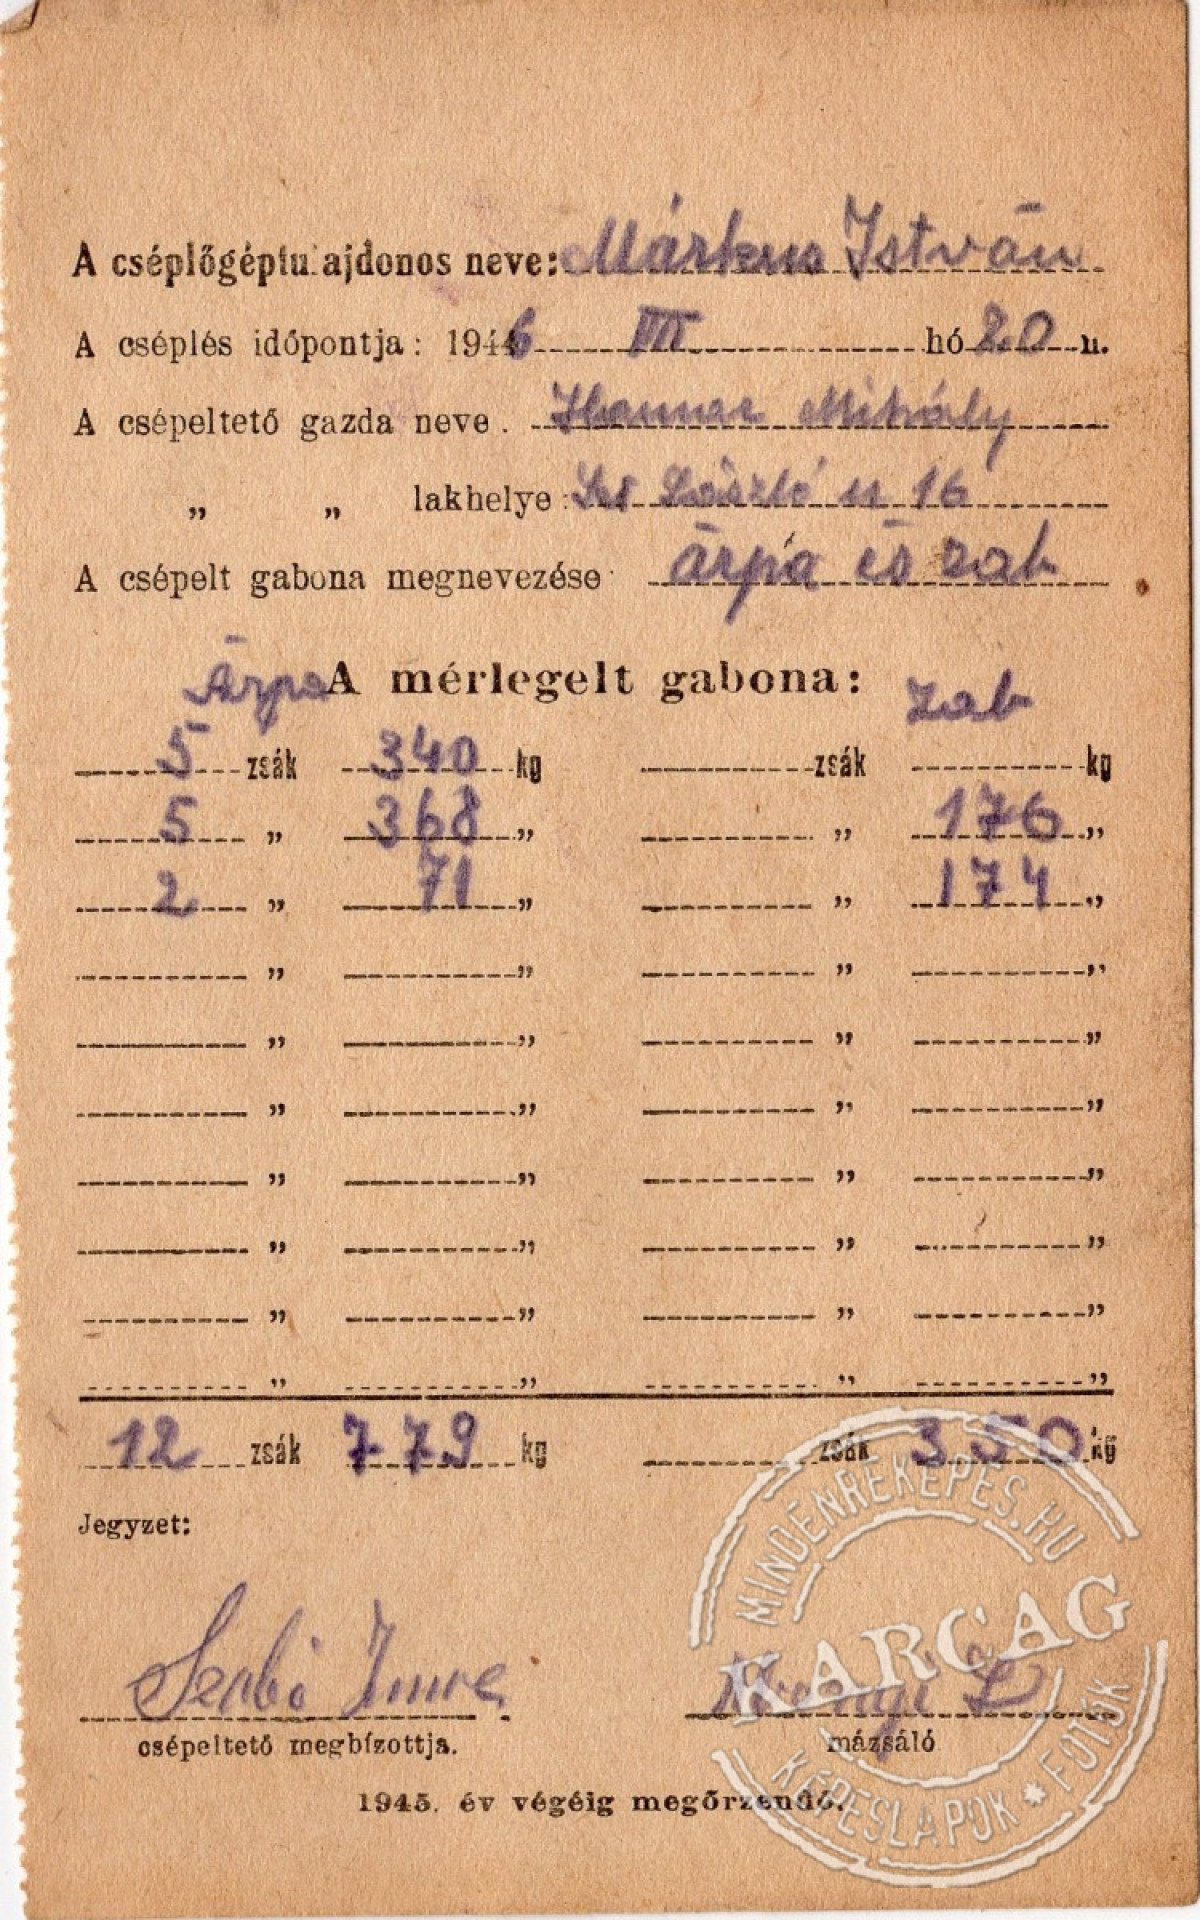 A cséplőgéptu ajdonos neve: Márkus István
A cséplés időpontja: 1946 VIII hó 20 n.
A csépeltető gazda neve. Mihály
„ „ lakhelye: László u 16
A csépelt gabona megnevezése árpa és zab
Árpa A mérlegelt gabona: zab
5 zsák 340 kg zsák kg
5 „ 368 „ „ 176 „
2 „ 71 „ „ 174 „
„ „ „ „
„ „ „ „
„ „ „ „
„ „ „ „
„ „ „ „
„ „ „ „
„ „ „ „
12 zsák 779 kg zsák 350 kg
Jegyzet:
Szabó Imre
csépeltető megbízottja. mázsáló
1945. év végéig megőrzendő.
MINDENREKEPES.HU
KARCAG
KÉPESLAPOK * FOTÓK